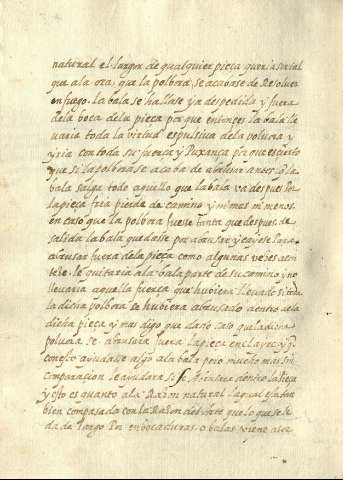 natural el largor de qualquier pieça queria ser tal
que a la ora que la polbora se acabase de Resolver
en fuego la bala se hallase ya despedida y fuera
de la voca de la pieça por que entonces la bala lle
varia toda la virtud espulsiva de la polvora y
yria con toda su fuerça y Puxança por que es cierto
que si la polbora se acaba de abrasar antes q̃ la
bala salga todo aquello que la bala va despues Por
la pieça fria pierde de camino y ni mas ni menos
en caso que la polbora fuesse tanta que despues de
salida la bala quedasse por abrasar y cayese la
abrasar fuera de la pieça como algunas veces acon
tese le quitaria a la bala parte de su camino y no
llevaria aquella fuerça que hubiera llevado si toda
la dicha polbora se hubiera abrasado dentro de la
dicha pieça y mas digo que dado caso que la dicha
polvora se abrasara fuera la pieça en el ayre y
con esso ayudase algo a la bala pero mucho mas sin
comparacion le ayudara si se abrasara dentro la Pieça
y esto es quanto a la Razon natural la qual esta tan
bien compasada con la Razon del Arte que lo que se le
da de largo Por embocaduras o balas viene a